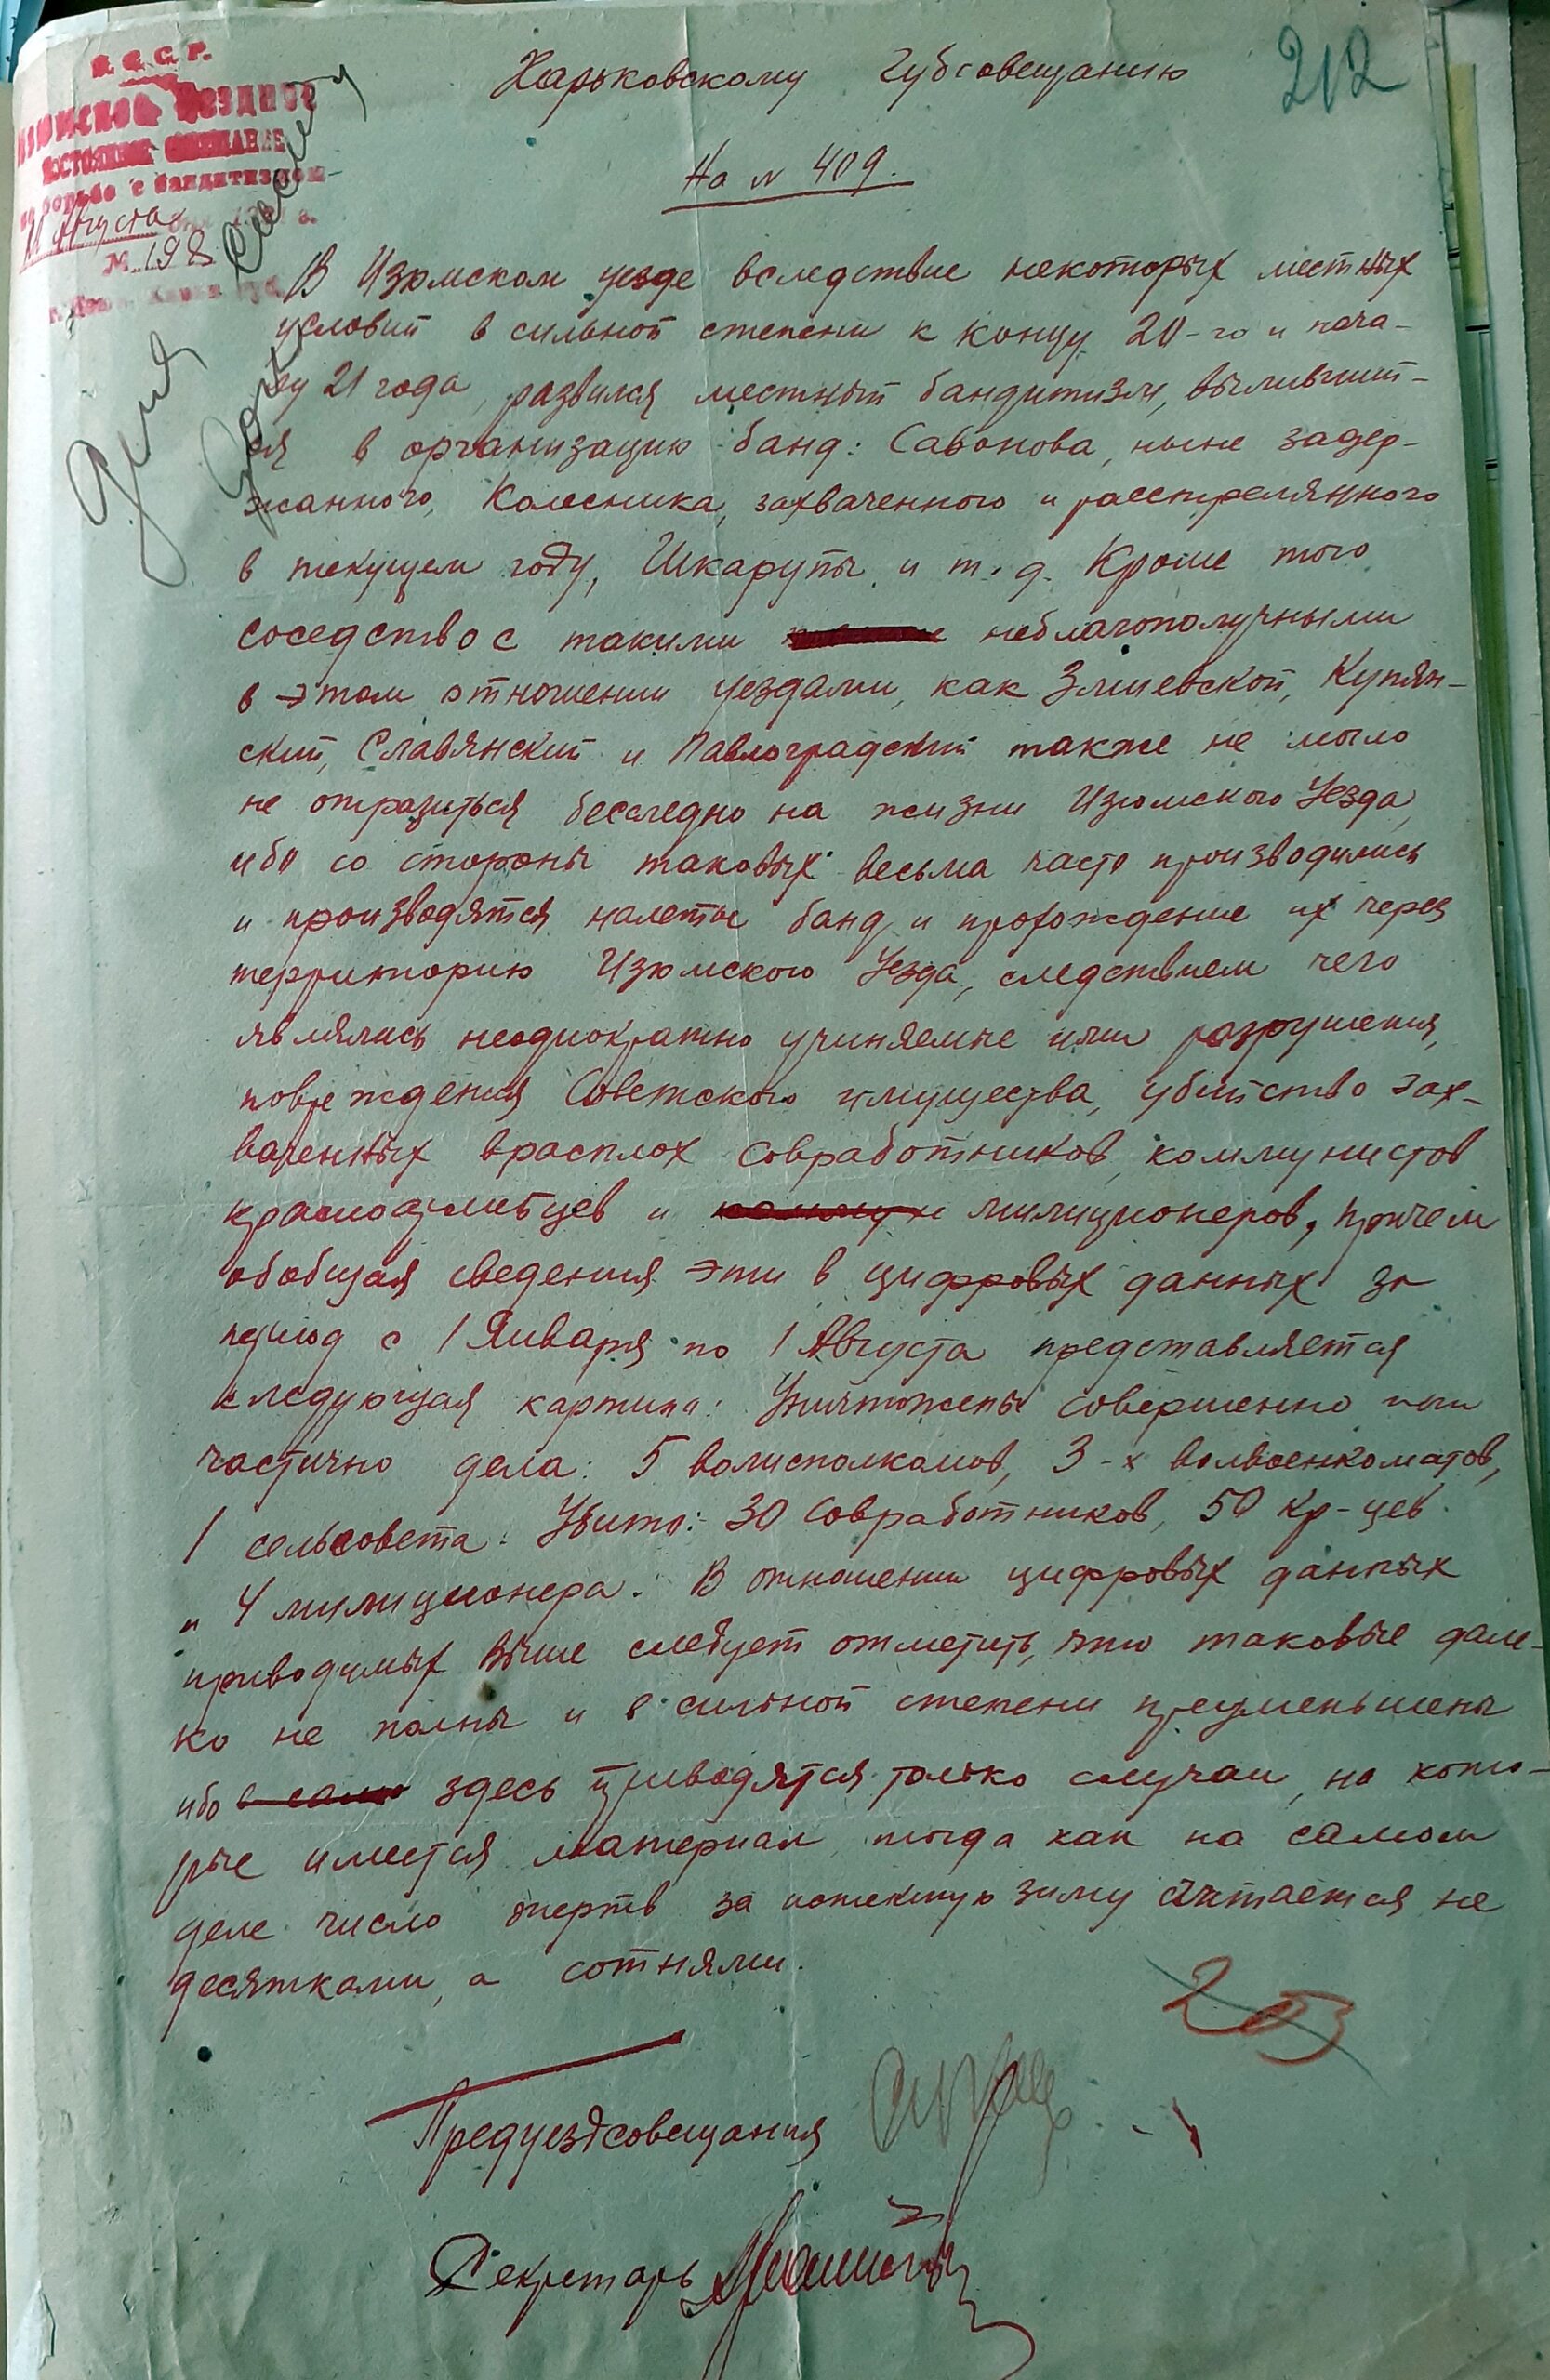 Харьковскому Губсовещанию
212
У.С.С.Р.
Изюмское Уездное
постоянное совещание
по борьбе с бандитизмом
11 Августа
№ 198
На № 409.
В Изюмском уезде вследствие некоторых местных
условий в сильной степени к концу 20-го и нача-
лу 21 года, развился местный бандитизм, вылившийт-
ся в организацию банд: Савонова, ныне задер-
жанного, Колесника, захваченного и расстрелянного
в текущем году, Шкарупы и т.д. Кроме того
соседство с такими неблагополучными
в этом отношении уездами, как Змиевской, Купян-
ский, Славянский и Павлоградский также не могло
не отразиться бесследно на жизни Изюмского Уезда,
ибо со стороны таковых весьма часто производились
и производятся налеты банд и прохождение их через
территорию Изюмского Уезда, следствием чего
являлись неоднократно учиняемые ими разрушения,
повреждения Советского имущества, убийство зах-
ваченных врасплох совработников, коммунистов
красноармейцев и милиционеров, причем
обобщая сведения эти в цифровых данных за
период с 1 Января по 1 Августа представляется
следующая картина: Уничтожены совершенно или
частично дела: 5 волисполкомов, 3-х волвоенкоматов,
1 сельсовета. Убито: 30 совработников, 50 кр-цев
и 4 милиционера. В отношении цифровых данных
приводимых выше следует отметить, что таковые дале-
ко не полны и в сильной степени преуменьшены
ибо здесь приводятся только случаи, на кото-
рые имеется материал, тогда как на самом
деле число жертв за истекшую зиму считается не
десятками, а сотнями.
203
Предуездсовещания
Секретарь